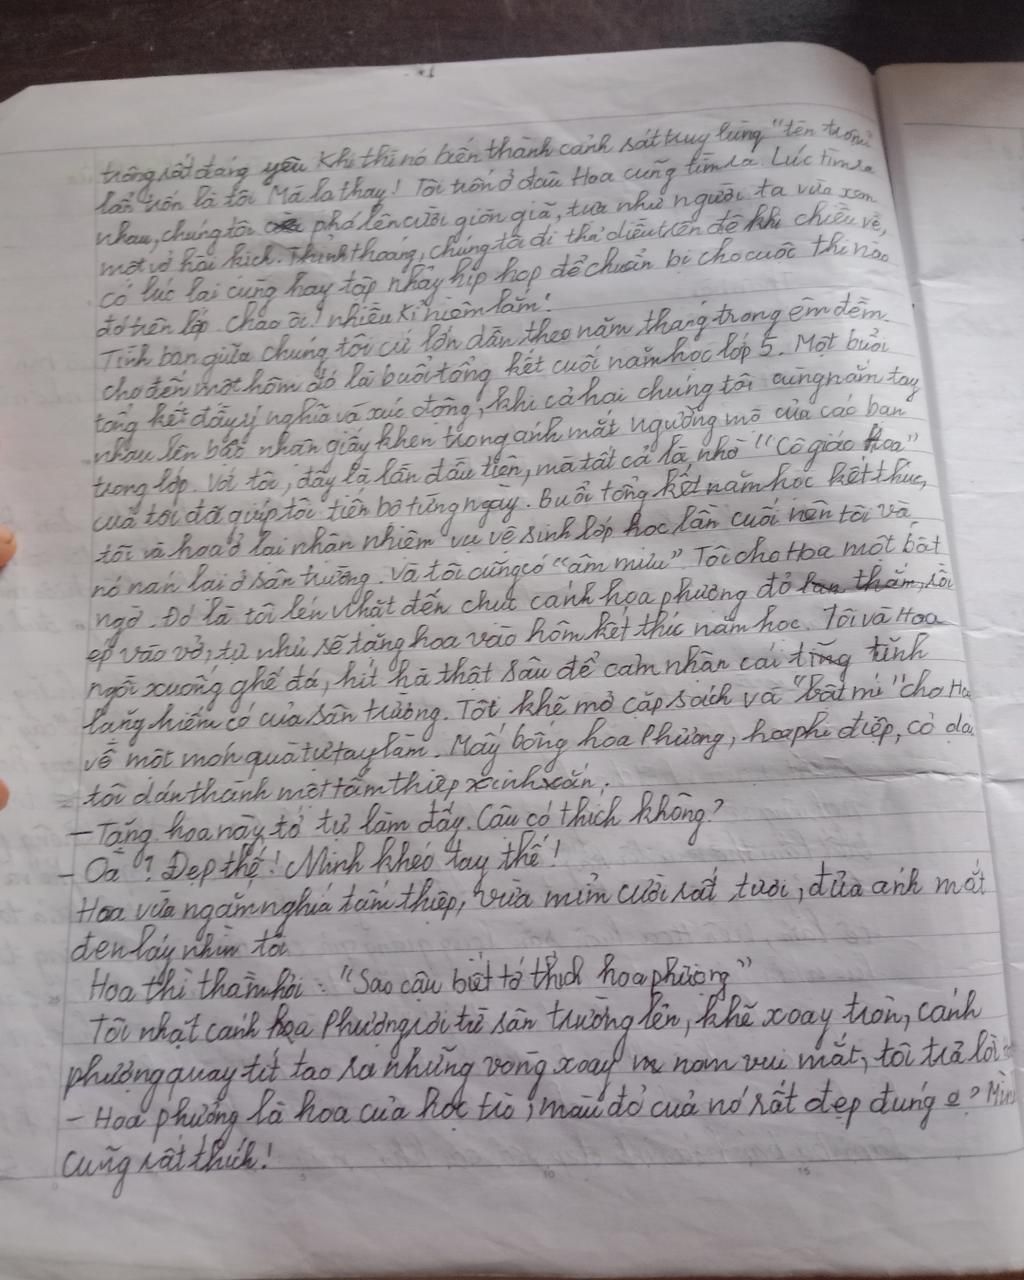 trông rất đáng yêu Khi thì nó biến thành cảnh sát truy lùng "tên trốn
lần trốn là tôi Mà lạ thay! Tôi trốn ở đâu Hoa cũng tìm ra. Lúc tìm ra
nhau, chúng tôi phá lên cười giòn giã, tựa như người ta vừa xem
một vở hài kịch. Thỉnh thoảng, chúng tôi đi thả diều trên đê khi chiều về,
có lúc lại cùng hay tập nhảy híp hop để chuẩn bị cho cuộc thi nào
đó trên lớp. Chao ôi! nhiều kỉ niệm lắm!
Tình bạn giữa chúng tôi cứ lớn dần theo năm tháng trong êm đềm.
cho đến một hôm đó là buổi tổng kết cuối năm học lớp 5. Một buổi
tổng kết đầy ý nghĩa và xúc động, khi cả hai chúng tôi cùng nắm tay
nhau lên bục nhận giấy khen trong ánh mắt ngưỡng mộ của các bạn
trong lớp. Với tôi, đây là lần đầu tiên, mà tất cả là nhờ "Cô giáo Hoa"
của tôi đã giúp tôi tiến bộ từng ngày. Buổi tổng kết năm học kết thúc,
tôi và hoa ở lại nhận nhiệm vụ vệ sinh lớp học lần cuối nên tôi và
nó nán lại ở sân trường. Và tôi cũng có "âm mưu" Tôi cho Hoa một bất
ngờ. Đó là tôi lén nhặt đến chục cánh hoa phượng đỏ lan thắm, rồi
ép vào vở, tự nhủ sẽ tặng hoa vào hôm kết thúc năm học. Tôi và Hoa
ngồi xuống ghế đá, hít hà thật sâu để cảm nhận cái tĩng tĩnh
lặng hiếm có của sân trường. Tôi khẽ mở cặp sách và "bật mí" cho Ho
về một món quà tự tay làm. Mấy bông hoa Phượng, hoa phi điệp, cỏ dại
tôi dán thành một tấm thiệp xinh xắn.
- Tặng hoa này tớ tự làm đấy. Cậu có thích không?
- Oà ? Đẹp thế! Mình khéo tay thế!
Hoa vừa ngắm nghía tấm thiệp, vừa mỉm cười rất tươi, đưa ánh mắt
đen láy nhìn tôi
Hoa thì thầm hỏi: "Sao cậu biết tớ thích hoa phượng"
Tôi nhặt cánh hoa Phượng rơi từ sân trường lên, khẽ xoay tròn, cánh
phượng quay tít tạo ra những vòng xoay nom vui mắt, tôi trả lời
- Hoa phượng là hoa của học trò, màu đỏ của nó rất đẹp đúng ? Mìn
cũng rất thích!